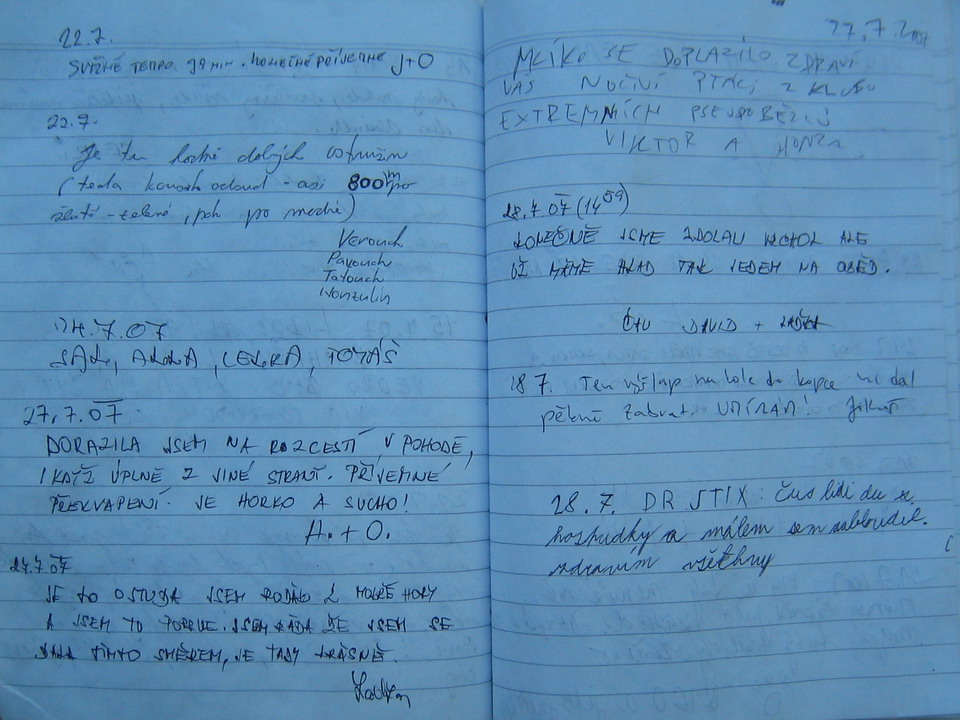 22.7.
SVIŽNÉ TEMPO 39 MIN. KONEČNĚ PŘÍJEMNĚ J+O
22.7.
Je tu hodně dobrých ostružin
(teda kousek odsud - asi 800m po
žluté - zelené, pak po modré)
Verouch
Pavouch
Tatouch
Honzulin
24.7.07
TOMÁŠ
27.7.07
DORAZILA JSEM NA ROZCESTÍ V POHODĚ,
I KDYŽ ÚPLNĚ Z JINÉ STRANY. PŘÍJEMNÉ
PŘEKVAPENÍ. JE HORKO A SUCHO!
A. + O.
27.7.07
JE TO OSTUDA JSEM RODÁK Z HORY
A JSEM TU POPRVÉ. JSEM RÁDA ŽE JSEM SE
TÍMTO SMĚREM, JE TADY KRÁSNĚ.
27.7.
SE DOPLAZILO ZDRAVÍ
VÁS NOČNÍ PTÁCI Z KLUBU
EXTREMNÍCH PSEUDOBĚŽCŮ
VIKTOR A HONZA
28.7.07 (14 59)
KONEČNĚ JSME ZDOLALI VRCHOL ALE
UŽ MÁME HLAD TAK JEDEM NA OBĚD.
ČAU DAVID +
28 7. Ten výšlap na kole do kopce mi dal
pěkně zabrat. UMÍRÁM!
28.7. DR STIX: Čus lidi du z
hospudky a málem sem zabloudil.
zdravim všechny